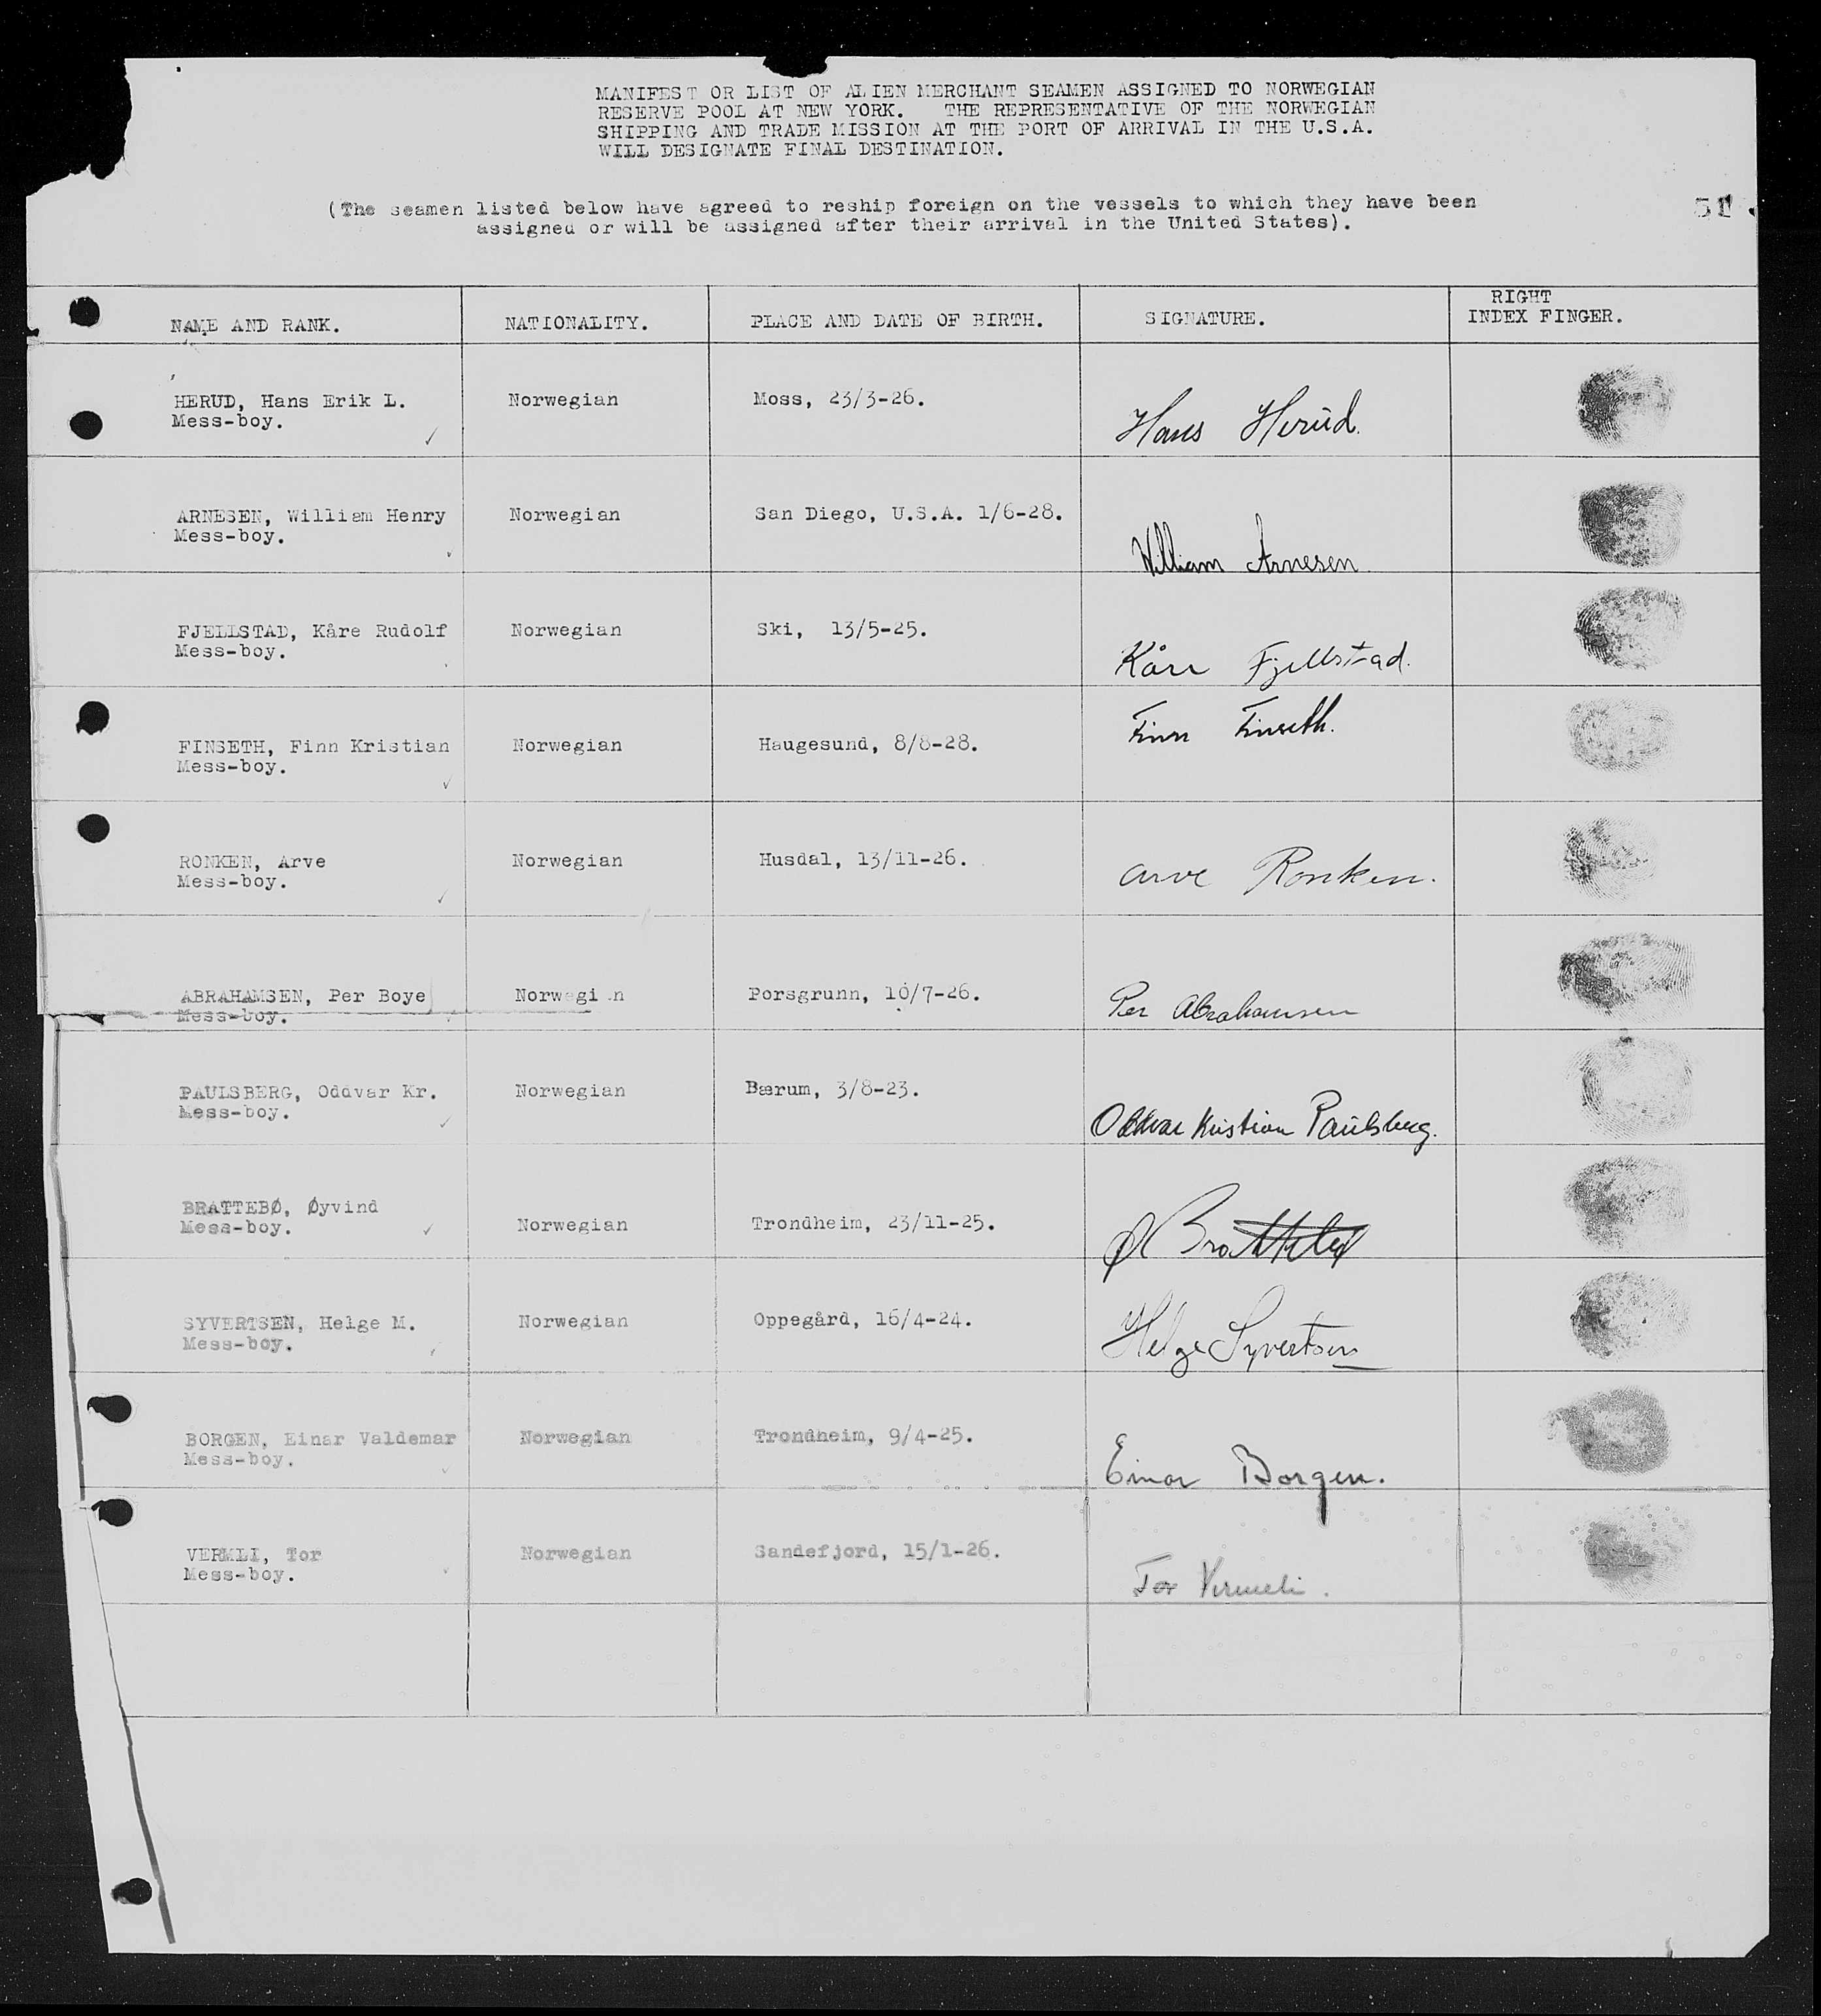 MANIFEST OR LIST OF ALIEN MERCHANT SEAMEN ASSIGNED TO NORWEGIAN
RESERVE POOL AT NEW YORK. THE REPRESENTATIVE OF THE NORWEGIAN
SHIPPING AND TRADE MISSION AT THE PORT OF ARRIVAL IN THE U.S.A.
WILL DESIGNATE FINAL DESTINATION.
(The seamen listed below have agreed to reship foreign on the vessels to which they have been
assigned or will be assigned after their arrival in the United States).
51
NAME AND RANK. NATIONALITY. PLACE AND DATE OF BIRTH. SIGNATURE. RIGHT
INDEX FINGER.
HERUD, Hans Erik L. Norwegian Moss, 23/3-26. Hans Herud.
Mess-boy.
ARNESEN, William Henry Norwegian San Diego, U.S.A. 1/6-28. William Arnesen
Mess-boy.
FJELLSTAD, Kåre Rudolf Norwegian Ski, 13/5-25. Kåre Fjellstad.
Mess-boy.
FINSETH, Finn Kristian Norwegian Haugesund, 8/8-28. Finn Finseth.
Mess-boy.
RONKEN, Arve Norwegian Husdal, 13/11-26. Arve Ronken.
Mess-boy.
ABRAHAMSEN, Per Boye Norwegian Porsgrunn, 10/7-26. Per Abrahamsen
Mess-boy.
PAULSBERG, Oddvar Kr. Norwegian Bærum, 3/8-23. Oddvar Kristian Paulsberg.
Mess-boy.
BRATTEBØ, Øyvind Norwegian Trondheim, 23/11-25. Ø Brattebø
Mess-boy.
SYVERTSEN, Helge M. Norwegian Oppegård, 16/4-24. Helge Syvertsen
Mess-boy.
BORGEN, Einar Valdemar Norwegian Trondheim, 9/4-25. Einar Borgen.
Mess-boy.
VERMLI, Tor Norwegian Sandefjord, 15/1-26. Tor Vermeli.
Mess-boy.